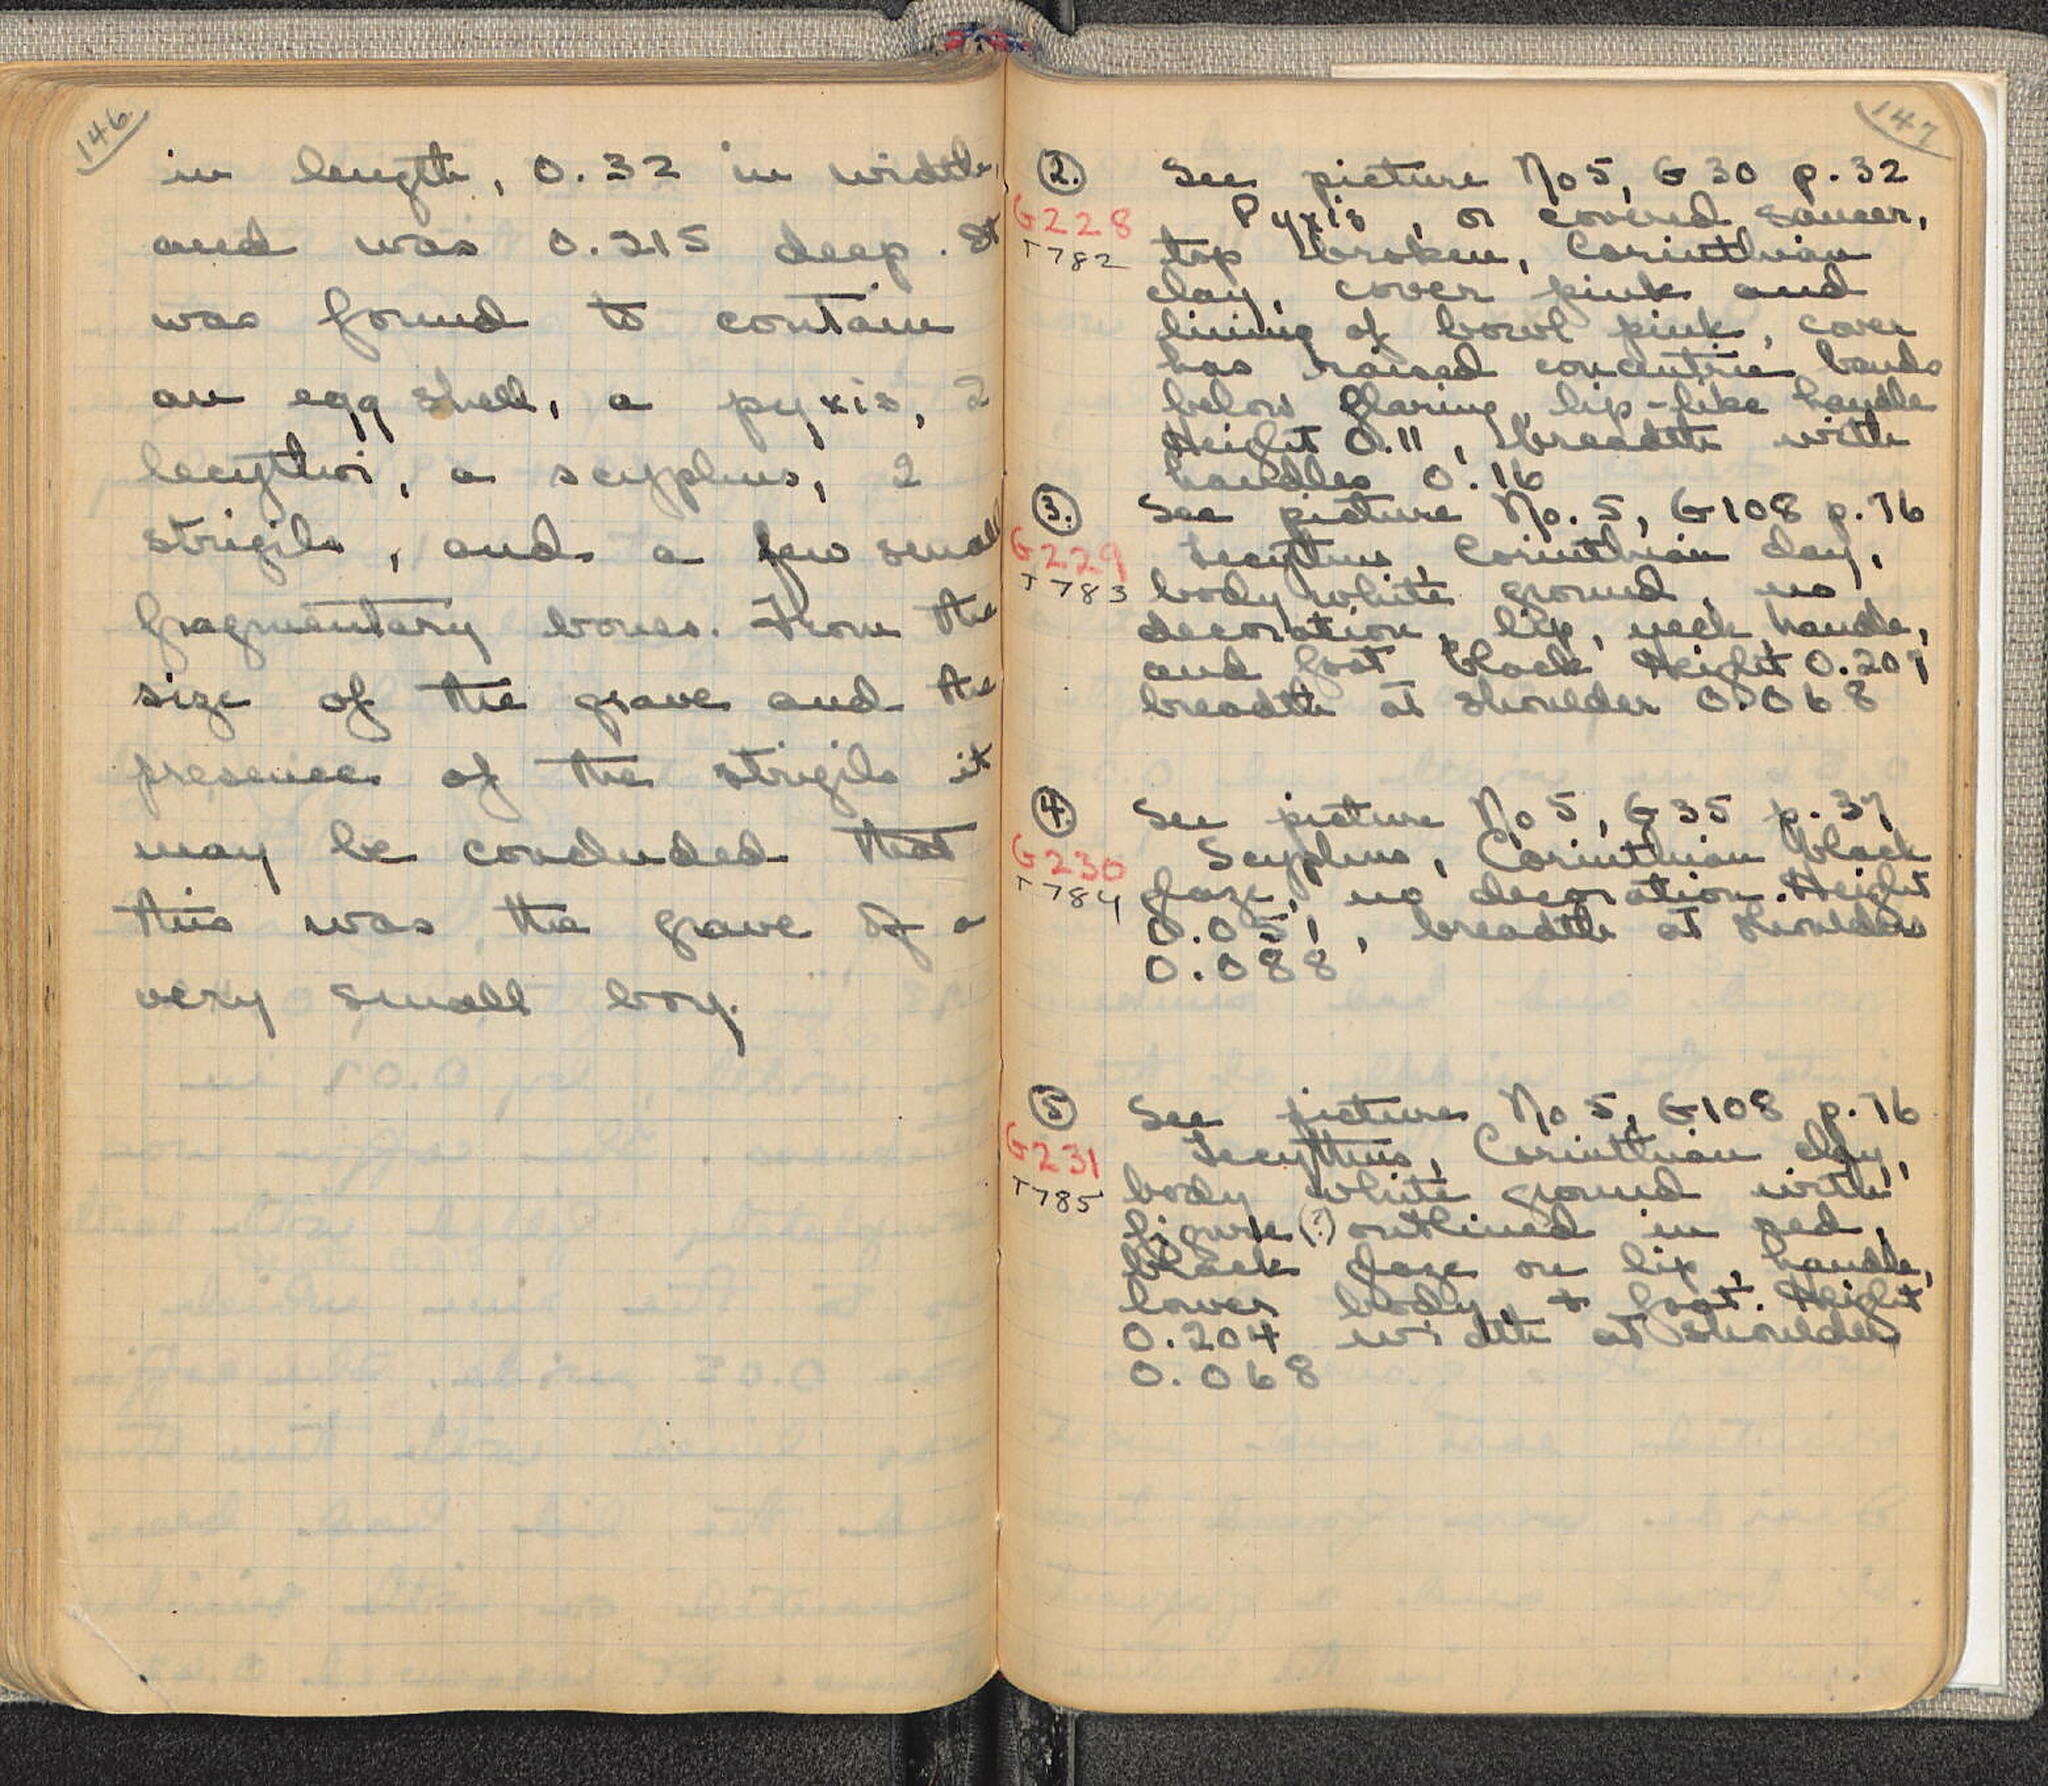 146.
in length, 0.32 in width,
and was 0.215 deep. It
was found to contain
an egg shell, a pyxis, 2
lecythi, a scyphus, 2
strigils, and a few small
fragmentary bones. From the
size of the grave and the
presence of the strigils it
may be concluded that
this was the grave of a
very small boy.
147
2. See picture No 5, G 30 p. 32
G228 Pyxis, or covered saucer,
T782 top broken, Corinthian
clay, cover pink and
lining of bowl pink, cover
has raised concentric bands
below flaring, lip-like handle
Height 0.11, breadth with
handles 0.16
3. See picture No. 5, G108 p. 76
G229 Lecythus, Corinthian clay,
T783 body white ground, no
decoration, lip, neck, handle,
and foot black Height 0.207
breadth at shoulder 0.068
4. See picture No 5, G35 p. 37
G230 Scyphus, Corinthian black
T784 glaze, no decoration. Height
0.051, breadth at shoulders
0.088
5 See picture No 5, G108 p. 76
G231 Lecythus, Corinthian clay,
T785 body white ground with
figure (?) outlined in red,
black glaze on lip, handle,
lower body, + foot. Height
0.204 width at shoulder
0.068